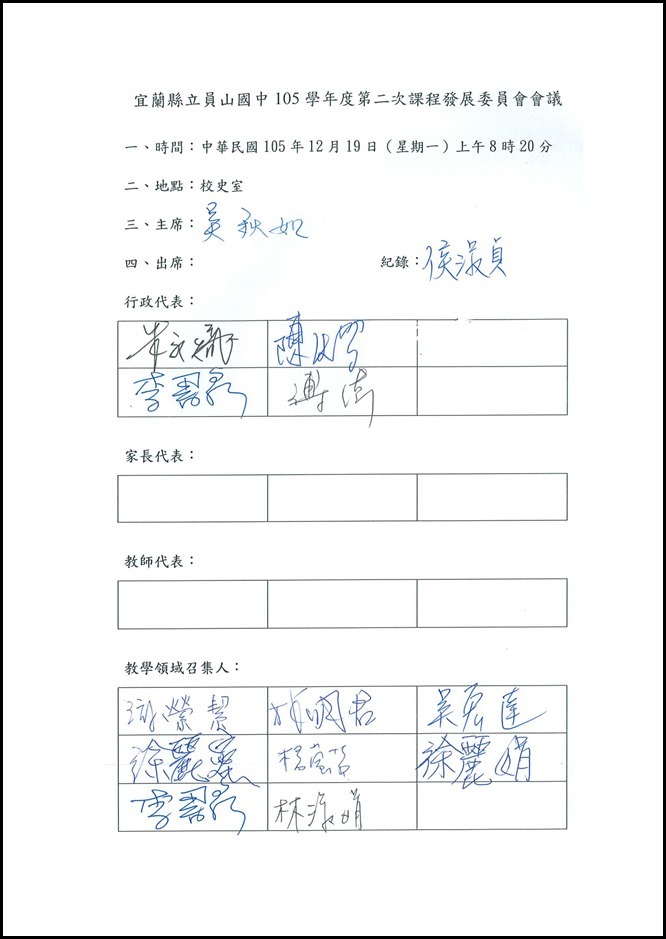 宜蘭縣立員山國中 105 學年度第二次課程發展委員會會議
一、時間：中華民國 105 年 12 月 19 日（星期一）上午 8 時 20 分
二、地點：校史室
三、主席：吳秋如
四、出席： 紀錄：侯淑貞
行政代表：
陳
李
家長代表：
教師代表：
教學領域召集人：
榮 吳宏達
徐麗 徐麗娟
李 林淑娟